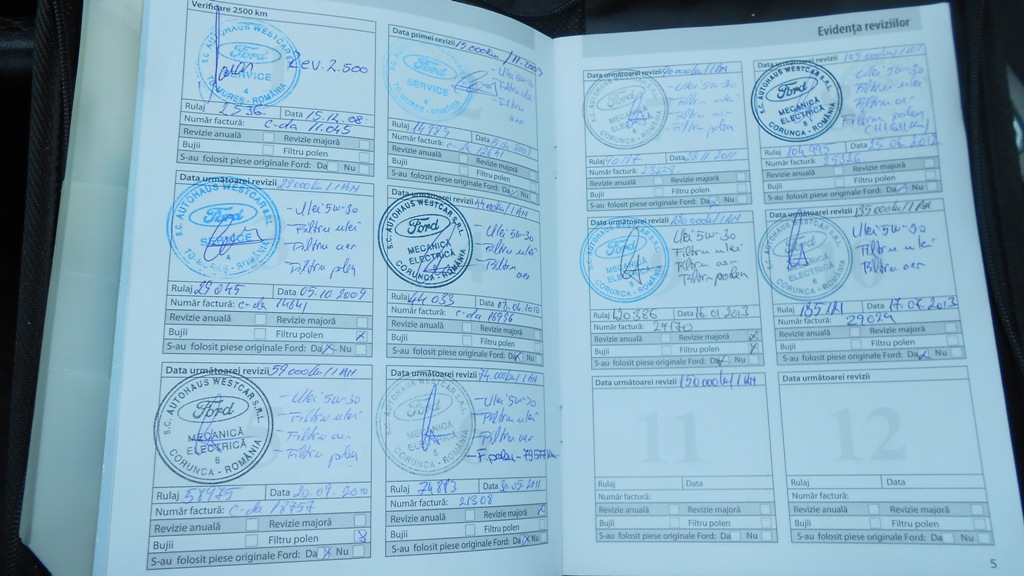 Verificare 2500 km
S.C. AUTOHAUS WESTCAR S.R.L.
Ford
SERVICE
4
ROMANIA
Rev. 2.500
Rulaj 2536 Data 15.12.08.
Număr factură: c-da 11.045
Revizie anuală Revizie majoră
Bujii Filtru polen
S-au folosit piese originale Ford: Da Nu
Data primei revizii 15.000km /
Ford
SERVICE
4
Ulei 5w-30
aer
Rulaj Data
Număr factură:
Revizie anuală Revizie majoră
Bujii Filtru polen
S-au folosit piese originale Ford: Da Nu
Data următoarei revizii 29.000km/1AN
S.C. AUTOHAUS WESTCAR S.R.L.
Ford
SERVICE
- Ulei 5w-30
- Filtru ulei
- Filtru aer
- Filtru polen
Rulaj 29045 Data 05.10 2009
Număr factură: c-da 14841
Revizie anuală Revizie majoră
Bujii Filtru polen x
S-au folosit piese originale Ford: Da x Nu
Data următoarei revizii 44000km/1AN
S.C. AUTOHAUS WESTCAR S.R.L.
Ford
MECANICĂ
ELECTRICĂ
6
CORUNCA - ROMÂNIA
- Ulei 5w-30
- Filtru ulei
- Filtru aer
Rulaj 44 033 Data
Număr factură: c-da
Revizie anuală Revizie majoră
Bujii Filtru polen
S-au folosit piese originale Ford: Da x Nu
Data următoarei revizii 59000km/1AN
S.C. AUTOHAUS WESTCAR S.R.L.
Ford
MECANICĂ
ELECTRICĂ
6
CORUNCA - ROMÂNIA
- Ulei 5w-30
- Filtru ulei
- Filtru aer
- Filtru polen
Rulaj 58975 Data 20.09. 2010
Număr factură: c-da 18757
Revizie anuală Revizie majoră
Bujii Filtru polen x
S-au folosit piese originale Ford: Da x Nu
Data următoarei revizii 74.000km/1AN
S.C. AUTOHAUS WESTCAR S.R.L.
Ford
MECANICĂ
ELECTRICĂ
6
CORUNCA - ROMÂNIA
- Ulei 5w-30
- Filtru ulei
- Filtru aer
- F. polen -
Rulaj 74883 Data 30.05.2011
Număr factură: 21308
Revizie anuală Revizie majoră x
Bujii Filtru polen
S-au folosit piese originale Ford: Da x Nu
Evidența reviziilor
Data următoarei revizii 90000km/1AN
Ford
MECANICĂ
ELECTRICĂ
CORUNCA - ROMÂNIA
Ulei 5w-30
Filtru ulei
Filtru aer
Filtru polen
Rulaj 90177 Data 28.11 2011
Număr factură: 23228
Revizie anuală Revizie majoră
Bujii Filtru polen
S-au folosit piese originale Ford: Da x Nu
Data următoarei revizii 105.000km/1AN
S.C. AUTOHAUS WESTCAR S.R.L.
Ford
MECANICĂ
ELECTRICĂ
6
CORUNCA - ROMÂNIA
Ulei 5w-30
Filtru ulei
Filtru aer
Filtru polen
Rulaj 104 995 Data
Număr factură: 25326
Revizie anuală Revizie majoră
Bujii Filtru polen
S-au folosit piese originale Ford: Da Nu
Data următoarei revizii 120.000km/1AN
Ford
MECANICĂ
ELECTRICĂ
CORUNCA - ROMÂNIA
Ulei 5w-30
Filtru ulei
Filtru aer
Filtru polen
Rulaj 120386 Data 16.01 2013
Număr factură: 27170
Revizie anuală Revizie majoră x
Bujii Filtru polen x
S-au folosit piese originale Ford: Da x Nu
Data următoarei revizii 135.000km/1AN
Ford
MECANICĂ
ELECTRICĂ
CORUNCA - ROMÂNIA
Ulei 5w-30
Filtru ulei
Filtru aer
Rulaj 135121 Data 17.07.2013
Număr factură: 29024
Revizie anuală Revizie majoră
Bujii Filtru polen
S-au folosit piese originale Ford: Da x Nu
Data următoarei revizii 150.000km/1AN
11
Rulaj Data
Număr factură:
Revizie anuală Revizie majoră
Bujii Filtru polen
S-au folosit piese originale Ford: Da Nu
Data următoarei revizii
12
Rulaj Data
Număr factură:
Revizie anuală Revizie majoră
Bujii Filtru polen
S-au folosit piese originale Ford: Da Nu
5